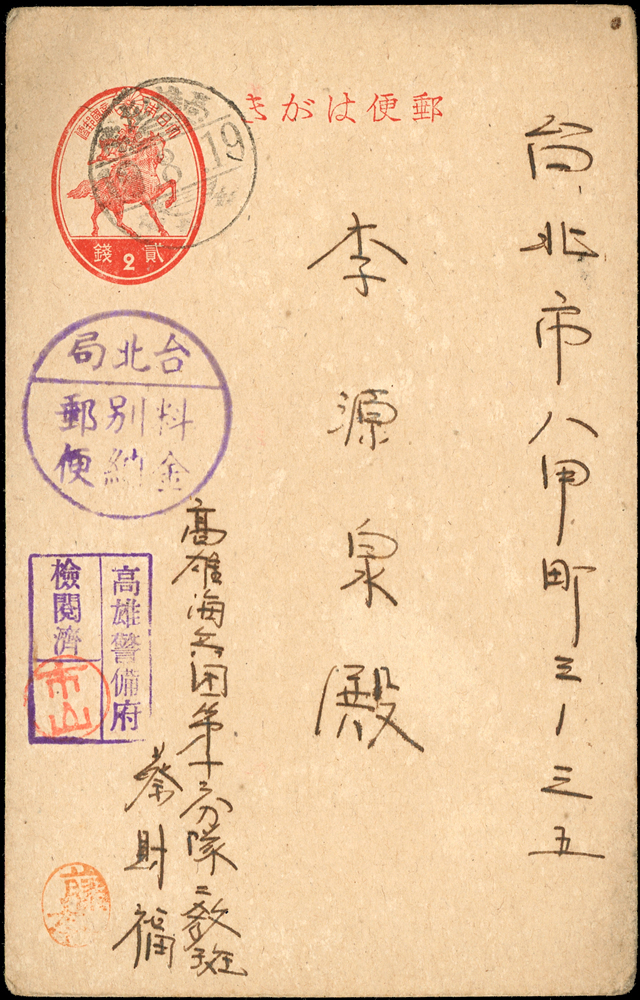 郵便はがき
大日本帝國郵便
貳2錢
高雄
19
台北市八甲町三ノ三五
李源泉殿
台北局
料金
別納
郵便
高雄警備府
檢閲濟
高雄海兵団第十三分隊二教班
蔡財福